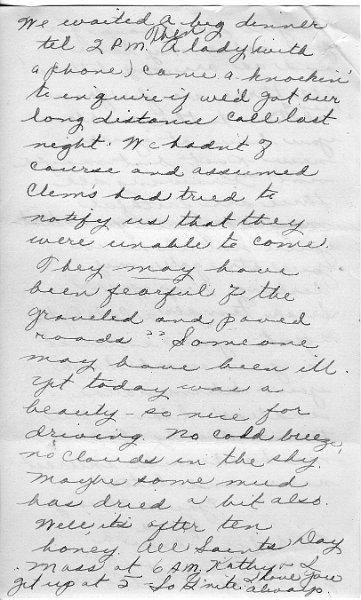 We waited a big dinner
til 2 P.M. Then A lady (with
a phone) came a knockin'
to inquire if we'd got our
long distance call last
night. We hadn't of
course and assumed
Clem's had tried to
notify us that they
were unable to come.
They may have
been fearful of the
graveled and paved
roads?? Someone
may have been ill.
Yet today was a
beauty - so nice for
driving. No cold breeze,
no clouds in the sky.
Maybe some mud
has dried a bit also.
Well, it's after ten
honey. All Saints Day
Mass at 6 AM, Kathy & I
get up at 5 - So G'nite I love you always.